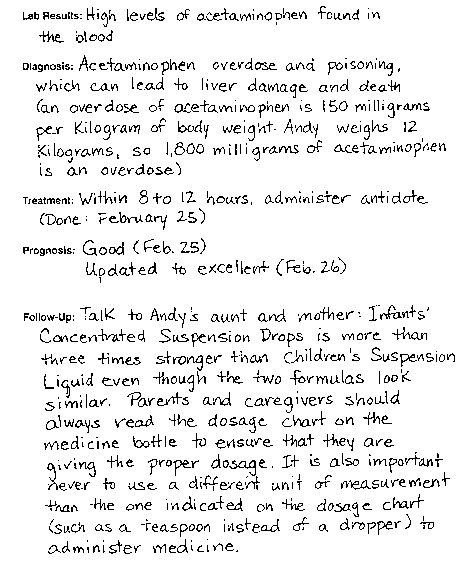 Lab Results: High levels of acetaminophen found in
the blood
Diagnosis: Acetaminophen overdose and poisoning,
which can lead to liver damage and death
(an overdose of acetaminophen is 150 milligrams
per Kilogram of body weight. Andy weighs 12
Kilograms, so 1,800 milligrams of acetaminophen
is an overdose)
Treatment: Within 8 to 12 hours, administer antidote
(Done: February 25)
Prognosis: Good (Feb. 25)
Updated to excellent (Feb. 26)
Follow-Up: Talk to Andy's aunt and mother: Infants'
Concentrated Suspension Drops is more than
three times stronger than Children's Suspension
Liquid even though the two formulas look
similar. Parents and caregivers should
always read the dosage chart on the
medicine bottle to ensure that they are
giving the proper dosage. It is also important
never to use a different unit of measurement
than the one indicated on the dosage chart
(such as a teaspoon instead of a dropper) to
administer medicine.